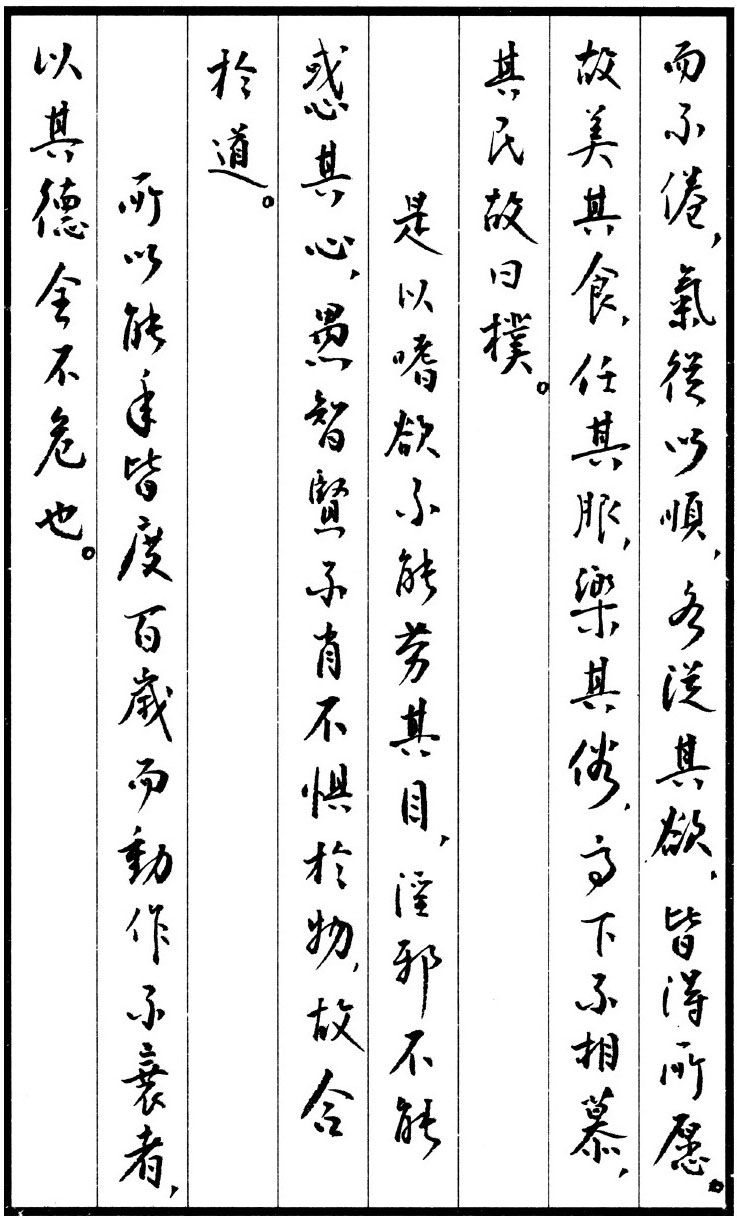 而不倦，氣從以順，各從其欲，皆得所愿。
故美其食，任其服，樂其俗，高下不相慕，
其民故曰樸。
是以嗜欲不能勞其目，淫邪不能
惑其心，愚智賢不肖不惧於物，故合
於道。
所以能年皆度百歲而動作不衰者，
以其德全不危也。